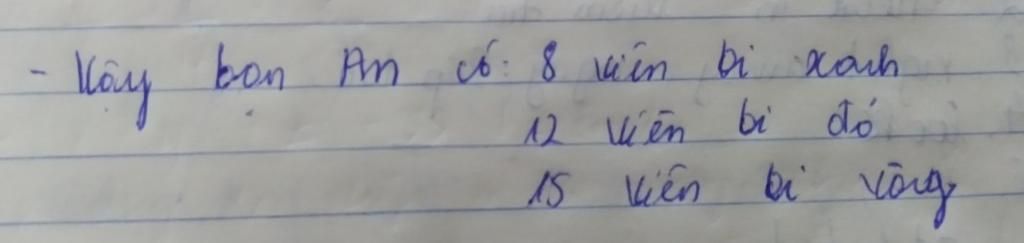 - Vậy bạn An có: 8 viên bi xanh
12 viên bi đỏ
15 viên bi vàng